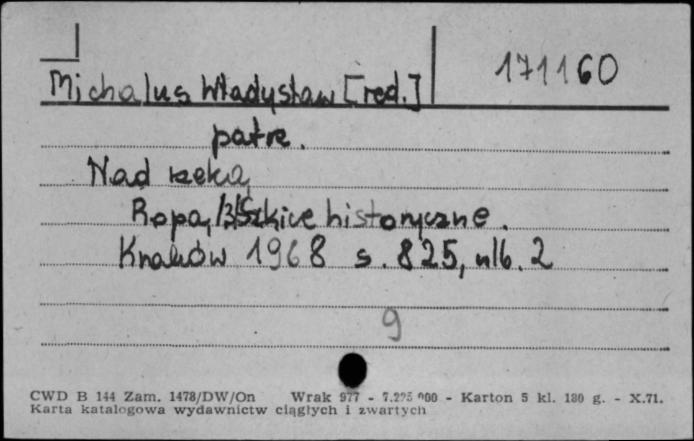 171160
Michalus Władysław [red.]
patrz.
Nad rzeką
Ropą, /3/ Szkice historyczne.
Kraków 1968 s. 825, nlb. 2
9
CWD B 144 Zam. 1478/DW/On Wrak 977 - 7.225 000 - Karton 5 kl. 180 g. - X.71.
Karta katalogowa wydawnictw ciągłych i zwartych